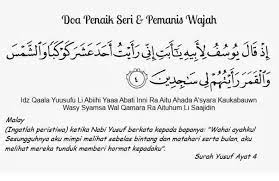 Doa Penaik Seri & Pemanis Wajah
إِذْ قَالَ يُوسُفُ لِأَبِيهِ يَٰٓأَبَتِ إِنِّى رَأَيْتُ أَحَدَ عَشَرَ كَوْكَبًا وَٱلشَّمْسَ
وَٱلْقَمَرَ رَأَيْتُهُمْ لِى سَٰجِدِينَ ٤
Idz Qaala Yuusufu Li Abiihi Yaaa Abati Inni Ra Aitu Ahada A'syara Kaukabauwn
Wasy Syamsa Wal Qamara Ra Aituhum Li Saajidin
Malay
(Ingatlah peristiwa) ketika Nabi Yusuf berkata kepada bapanya: "Wahai ayahku!
Sesungguhnya aku mimpi melihat sebelas bintang dan matahari serta bulan, aku
melihat mereka tunduk memberi hormat kepadaku".
Surah Yusuf Ayat 4